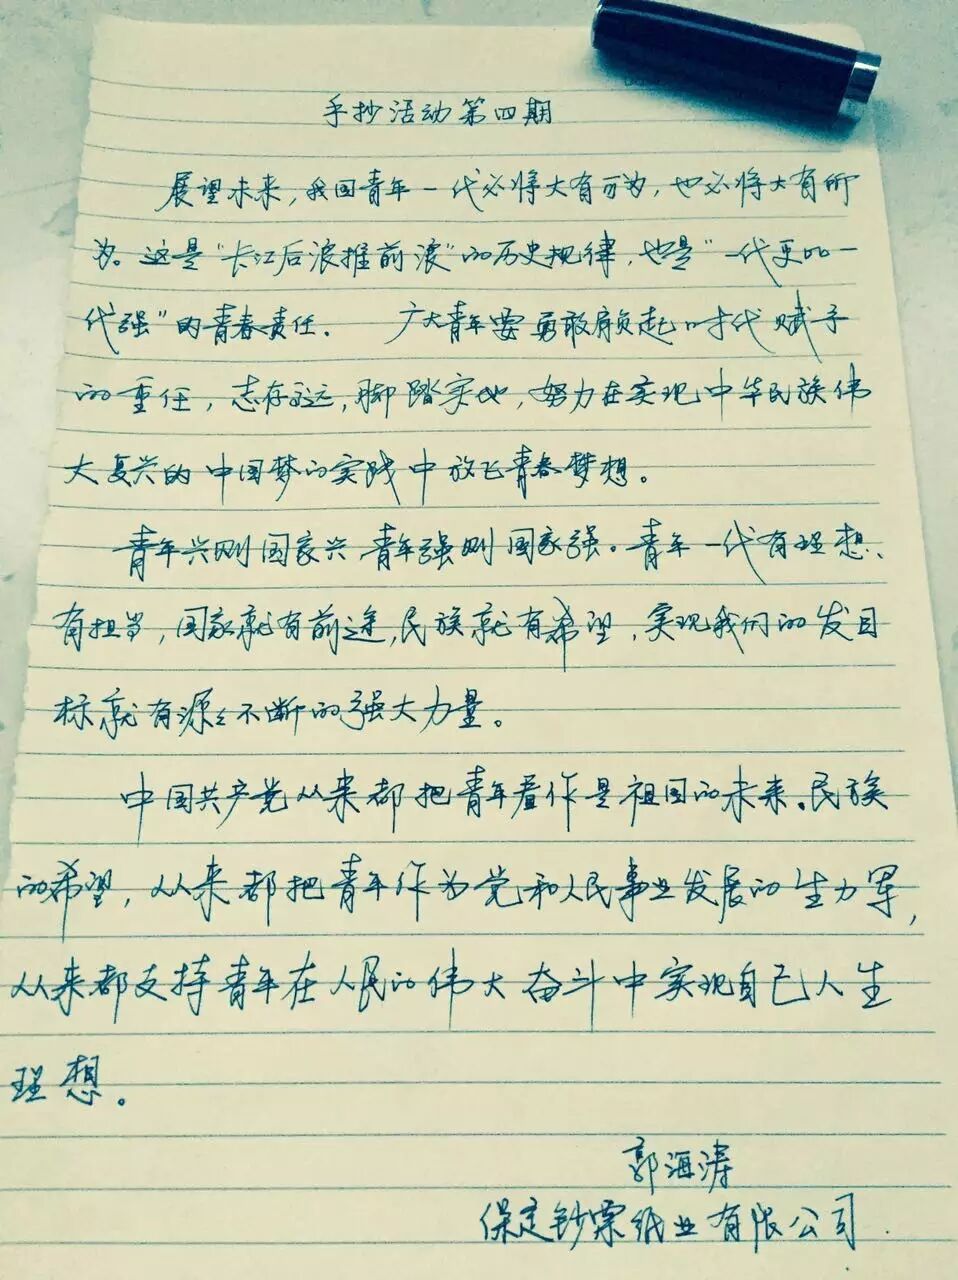 手抄活动第四期
展望未来，我国青年一代必将大有可为，也必将大有所
为。这是“长江后浪推前浪”的历史规律，也是“一代更的一
代强”的青春责任. 广大青年要勇敢肩负起时代赋予
的重任，志存高远，脚踏实地，努力在实现中华民族伟
大复兴的中国梦的实践中放飞青春梦想。
青年兴则国家兴 青年强则国家强。青年一代有理想、
有担当，国家就有前途，民族就有希望，实现我们的发目
标就有源々不断的强大力量。
中国共产党从来都把青年看作是祖国的未来、民族
的希望，从来都把青年作为党和人民事业发展的生力军，
从来都支持青年在人民的伟大奋斗中实现自己人生
理想。
郭海涛
保定钞票纸业有限公司.